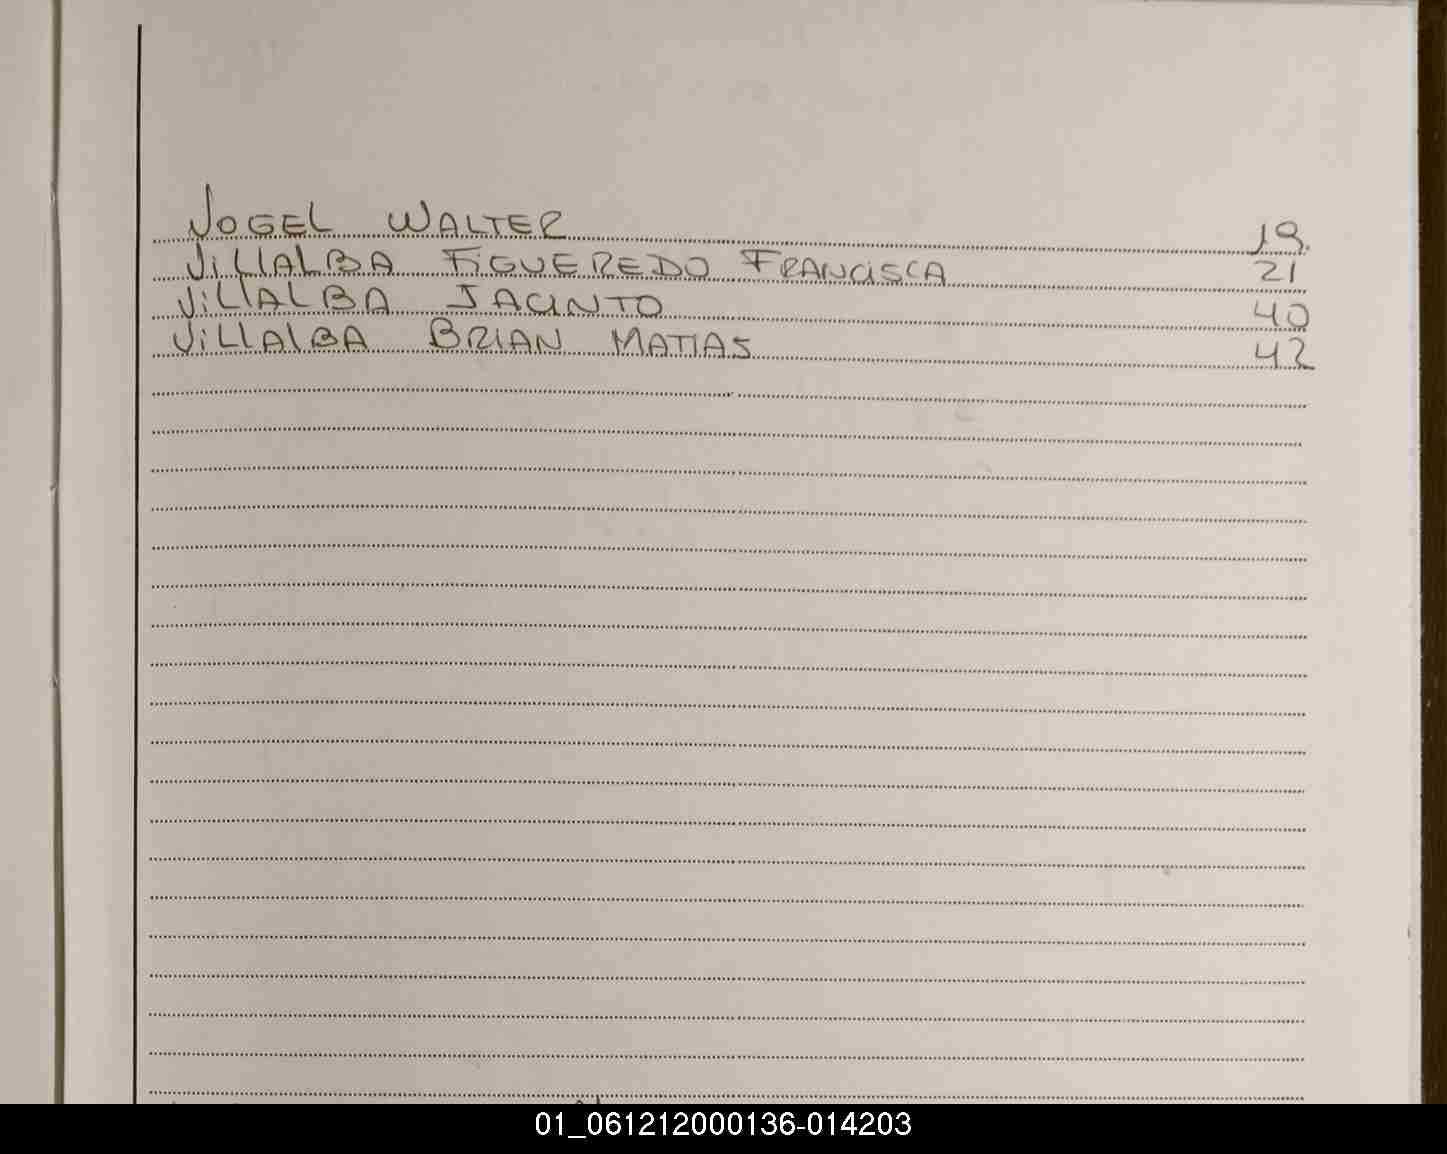 VOGEL WALTER 19.
ViLLALBA FiGUEREDO FRANCISCA 21
ViLLALBA JACINTO 40
ViLLALBA BRIAN MATIAS 42
01_061212000136-014203